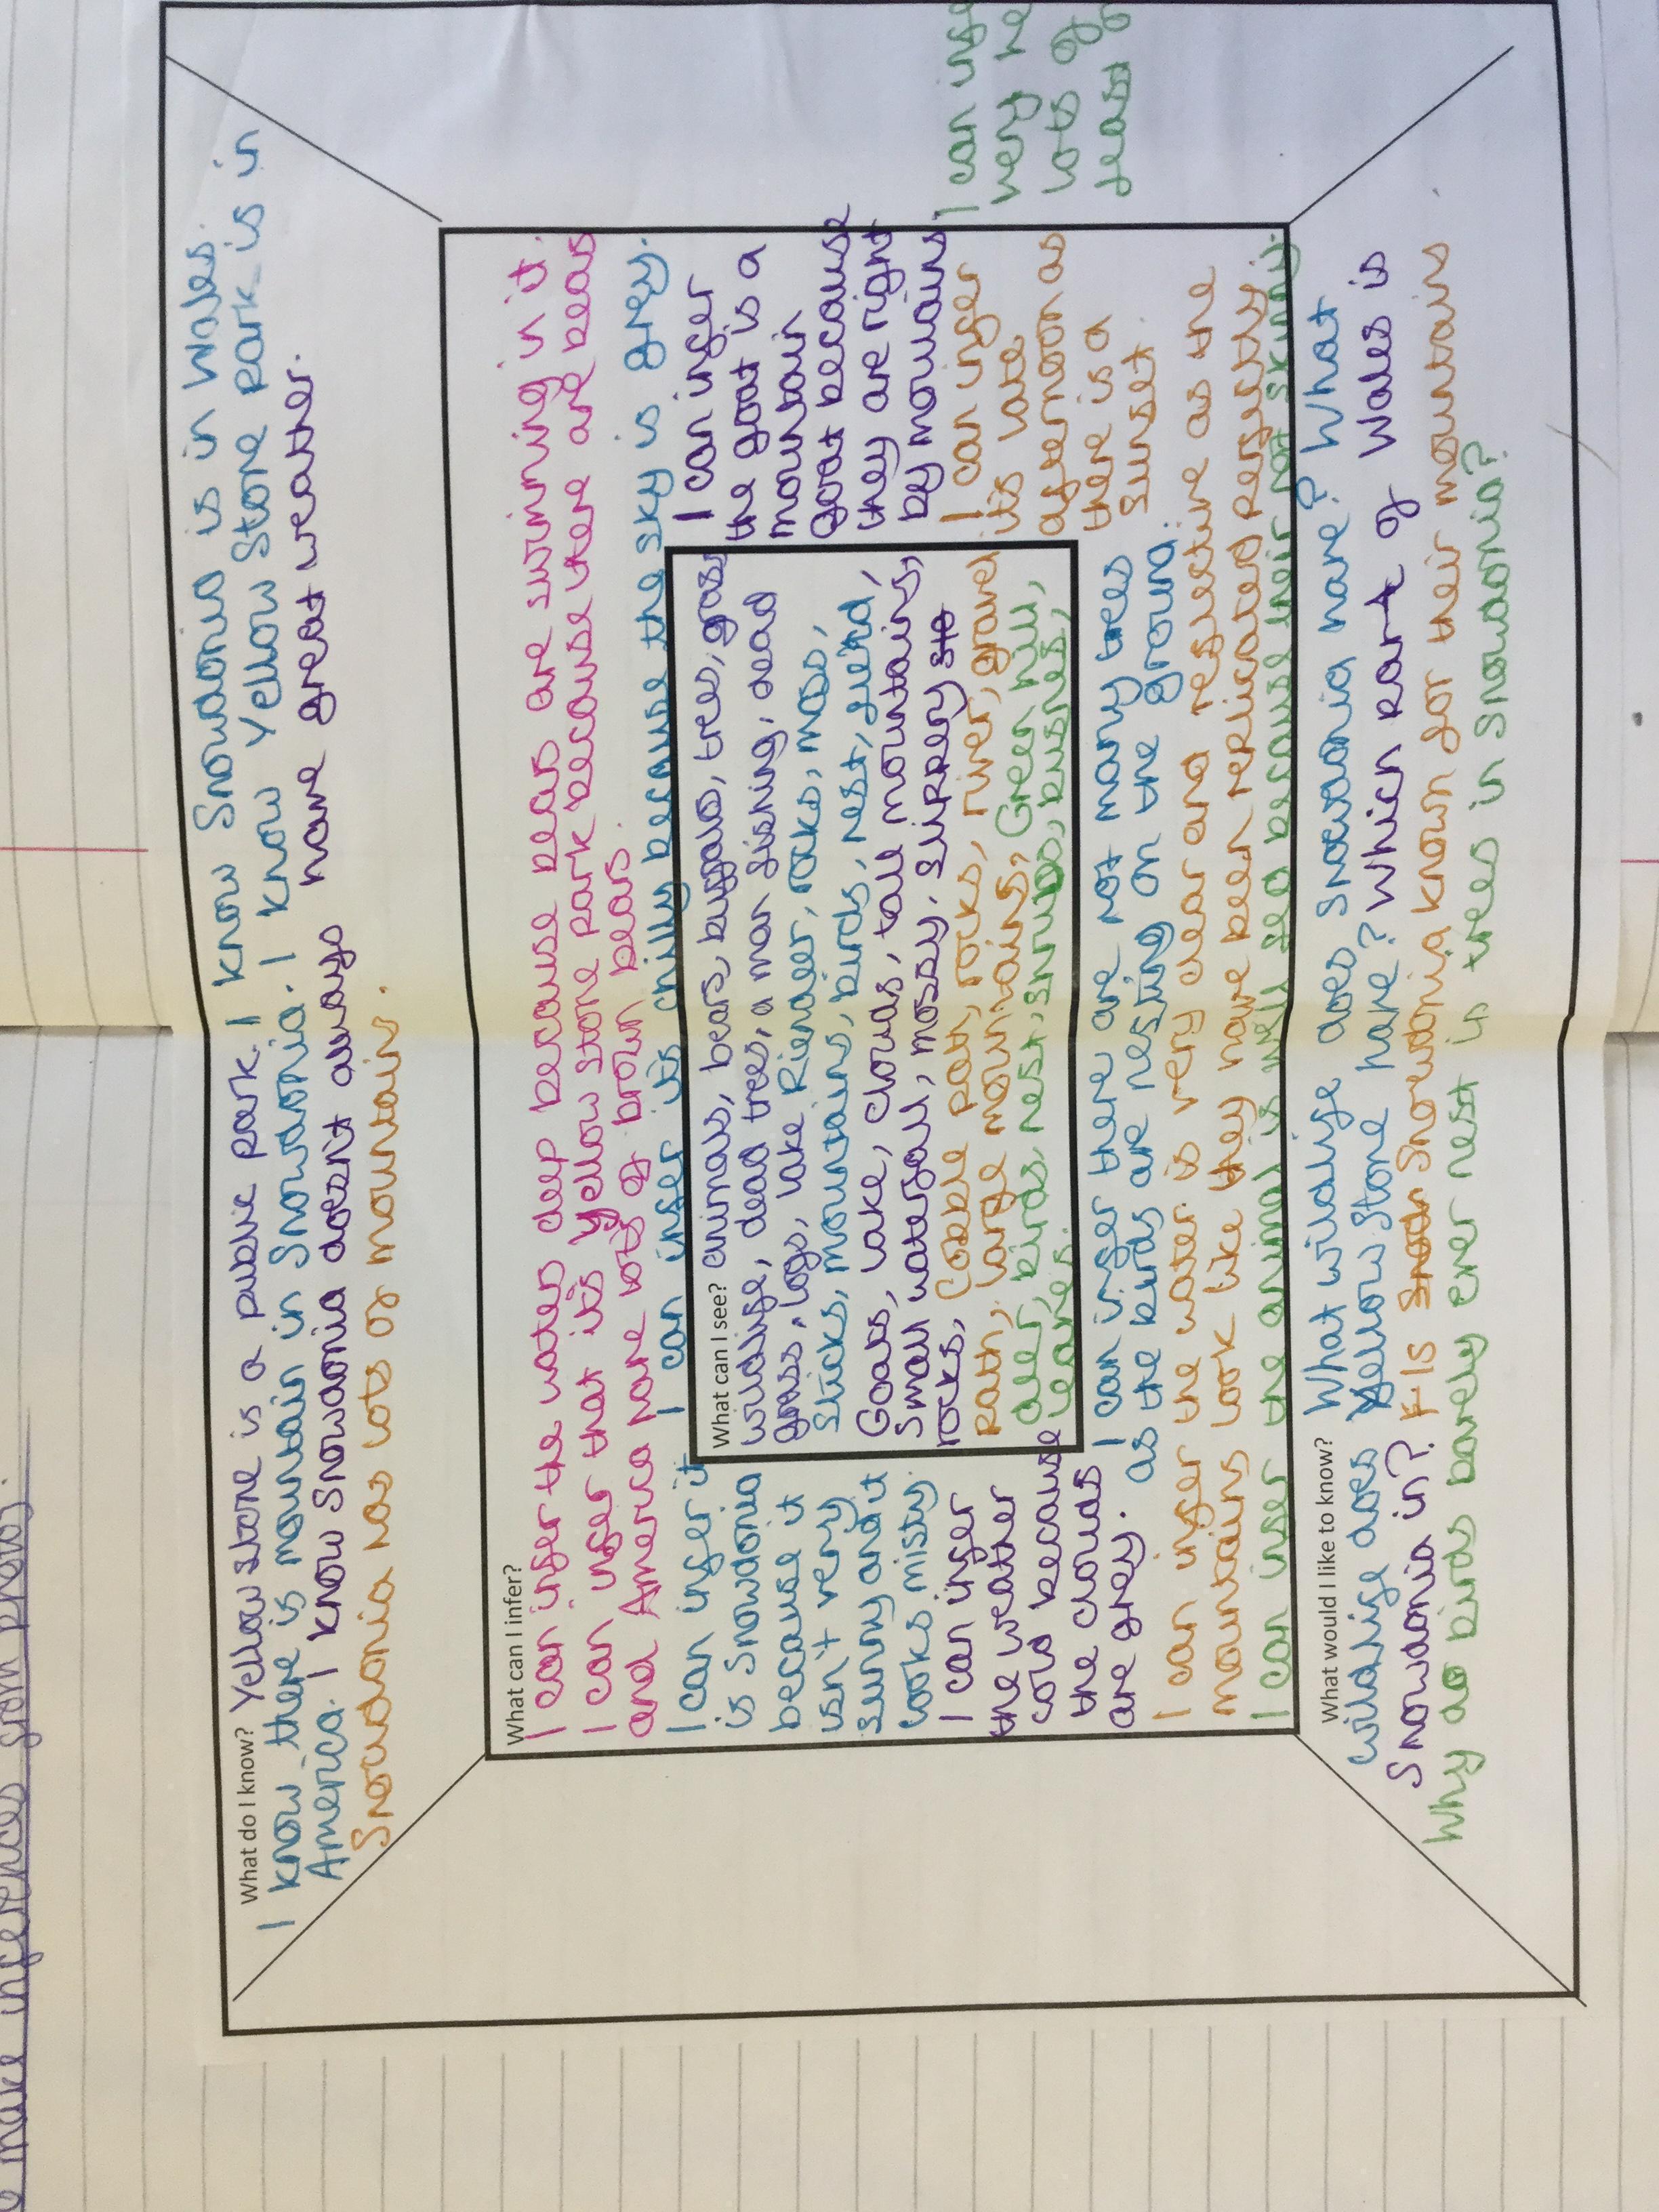 make inferences from photos.
What do I know? Yellow stone is a public park. I know Snowdonia is in Wales.
I know there is mountain in Snowdonia. I know Yellow Stone park is in
America. I know Snowdonia doesn't always have great weather.
Snowdonia has lots of mountains.
What can I infer?
I can infer the waters deep because bears are swiming in it.
I can infer that it's yellow stone park because there are bears
and America have lots of brown bears.
I can infer it's chilly because the sky is grey.
I can infer it
is Snowdonia
because it
isn't very
sunny and it
looks misty.
I can infer
the weather
cold because
the clouds
are grey.
What can I see? animals, bears, buffalo, trees, grass
wildlife, dead trees, a man fishing, dead
grass, logs, lake Rienaeer, rocks, moss,
sticks, mountains, birds, nest, field,
Goats, lake, clouds, tall mountains,
small waterfall, mossy, slippery sto
rocks, Cobble path, rocks, river, gravel
path, large mountains, Green hill,
deer, birds, nest, shrubs, bushes,
leaves.
I can infer
the goat is a
mountain
goat because
they are right
by mountains
I can infer
its late
afternoon as
there is a
sunset.
I can infer there are not many trees
as the birds are nesting on the ground.
I can infer the water is very clear and reflective as the
mountains look like they have been replicated perfectly
I can infer the animal is well fed because their not skinny.
I can infe
very he
lots of
least
What would I like to know? What wildlife does Snowdonia have? What
wildlife does Yellow Stone have? Which part of Wales is
Snowdonia in? F Is Snod Snowdonia known for their mountains
Why do birds barely ever nest in trees in Snowdonia?